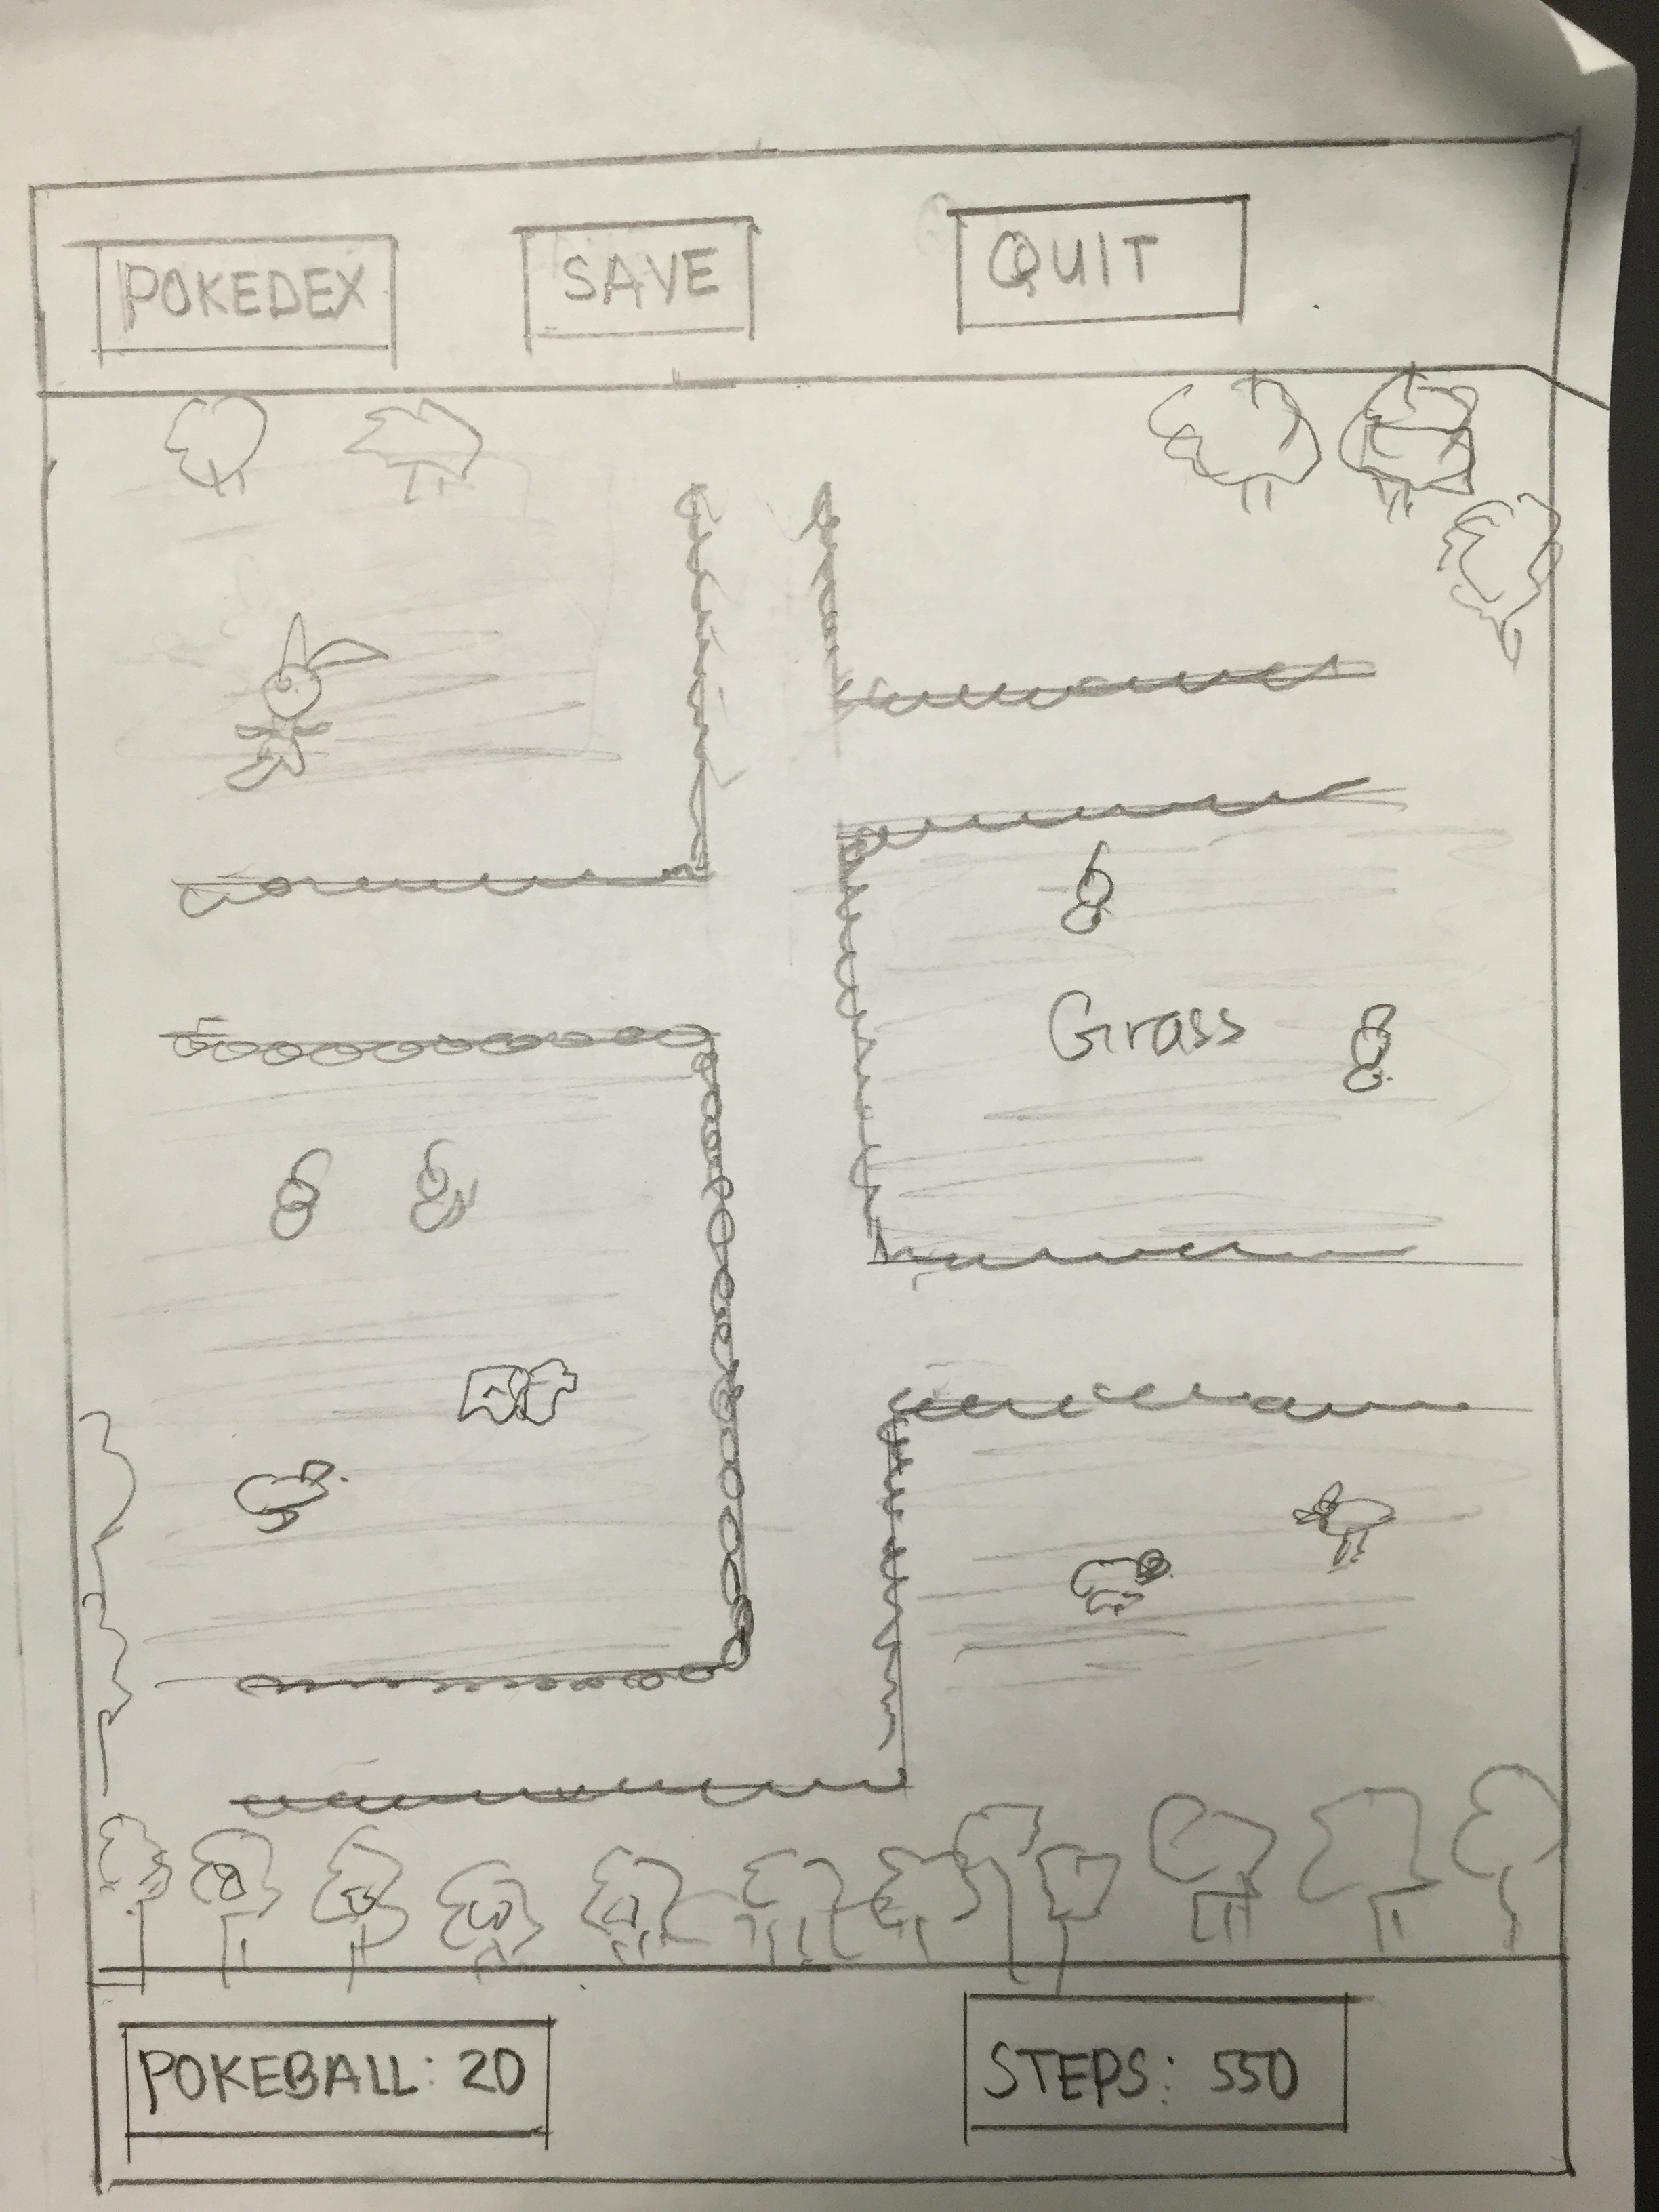 POKEDEX
SAVE
QUIT
Grass
POKEBALL: 20
STEPS: 550